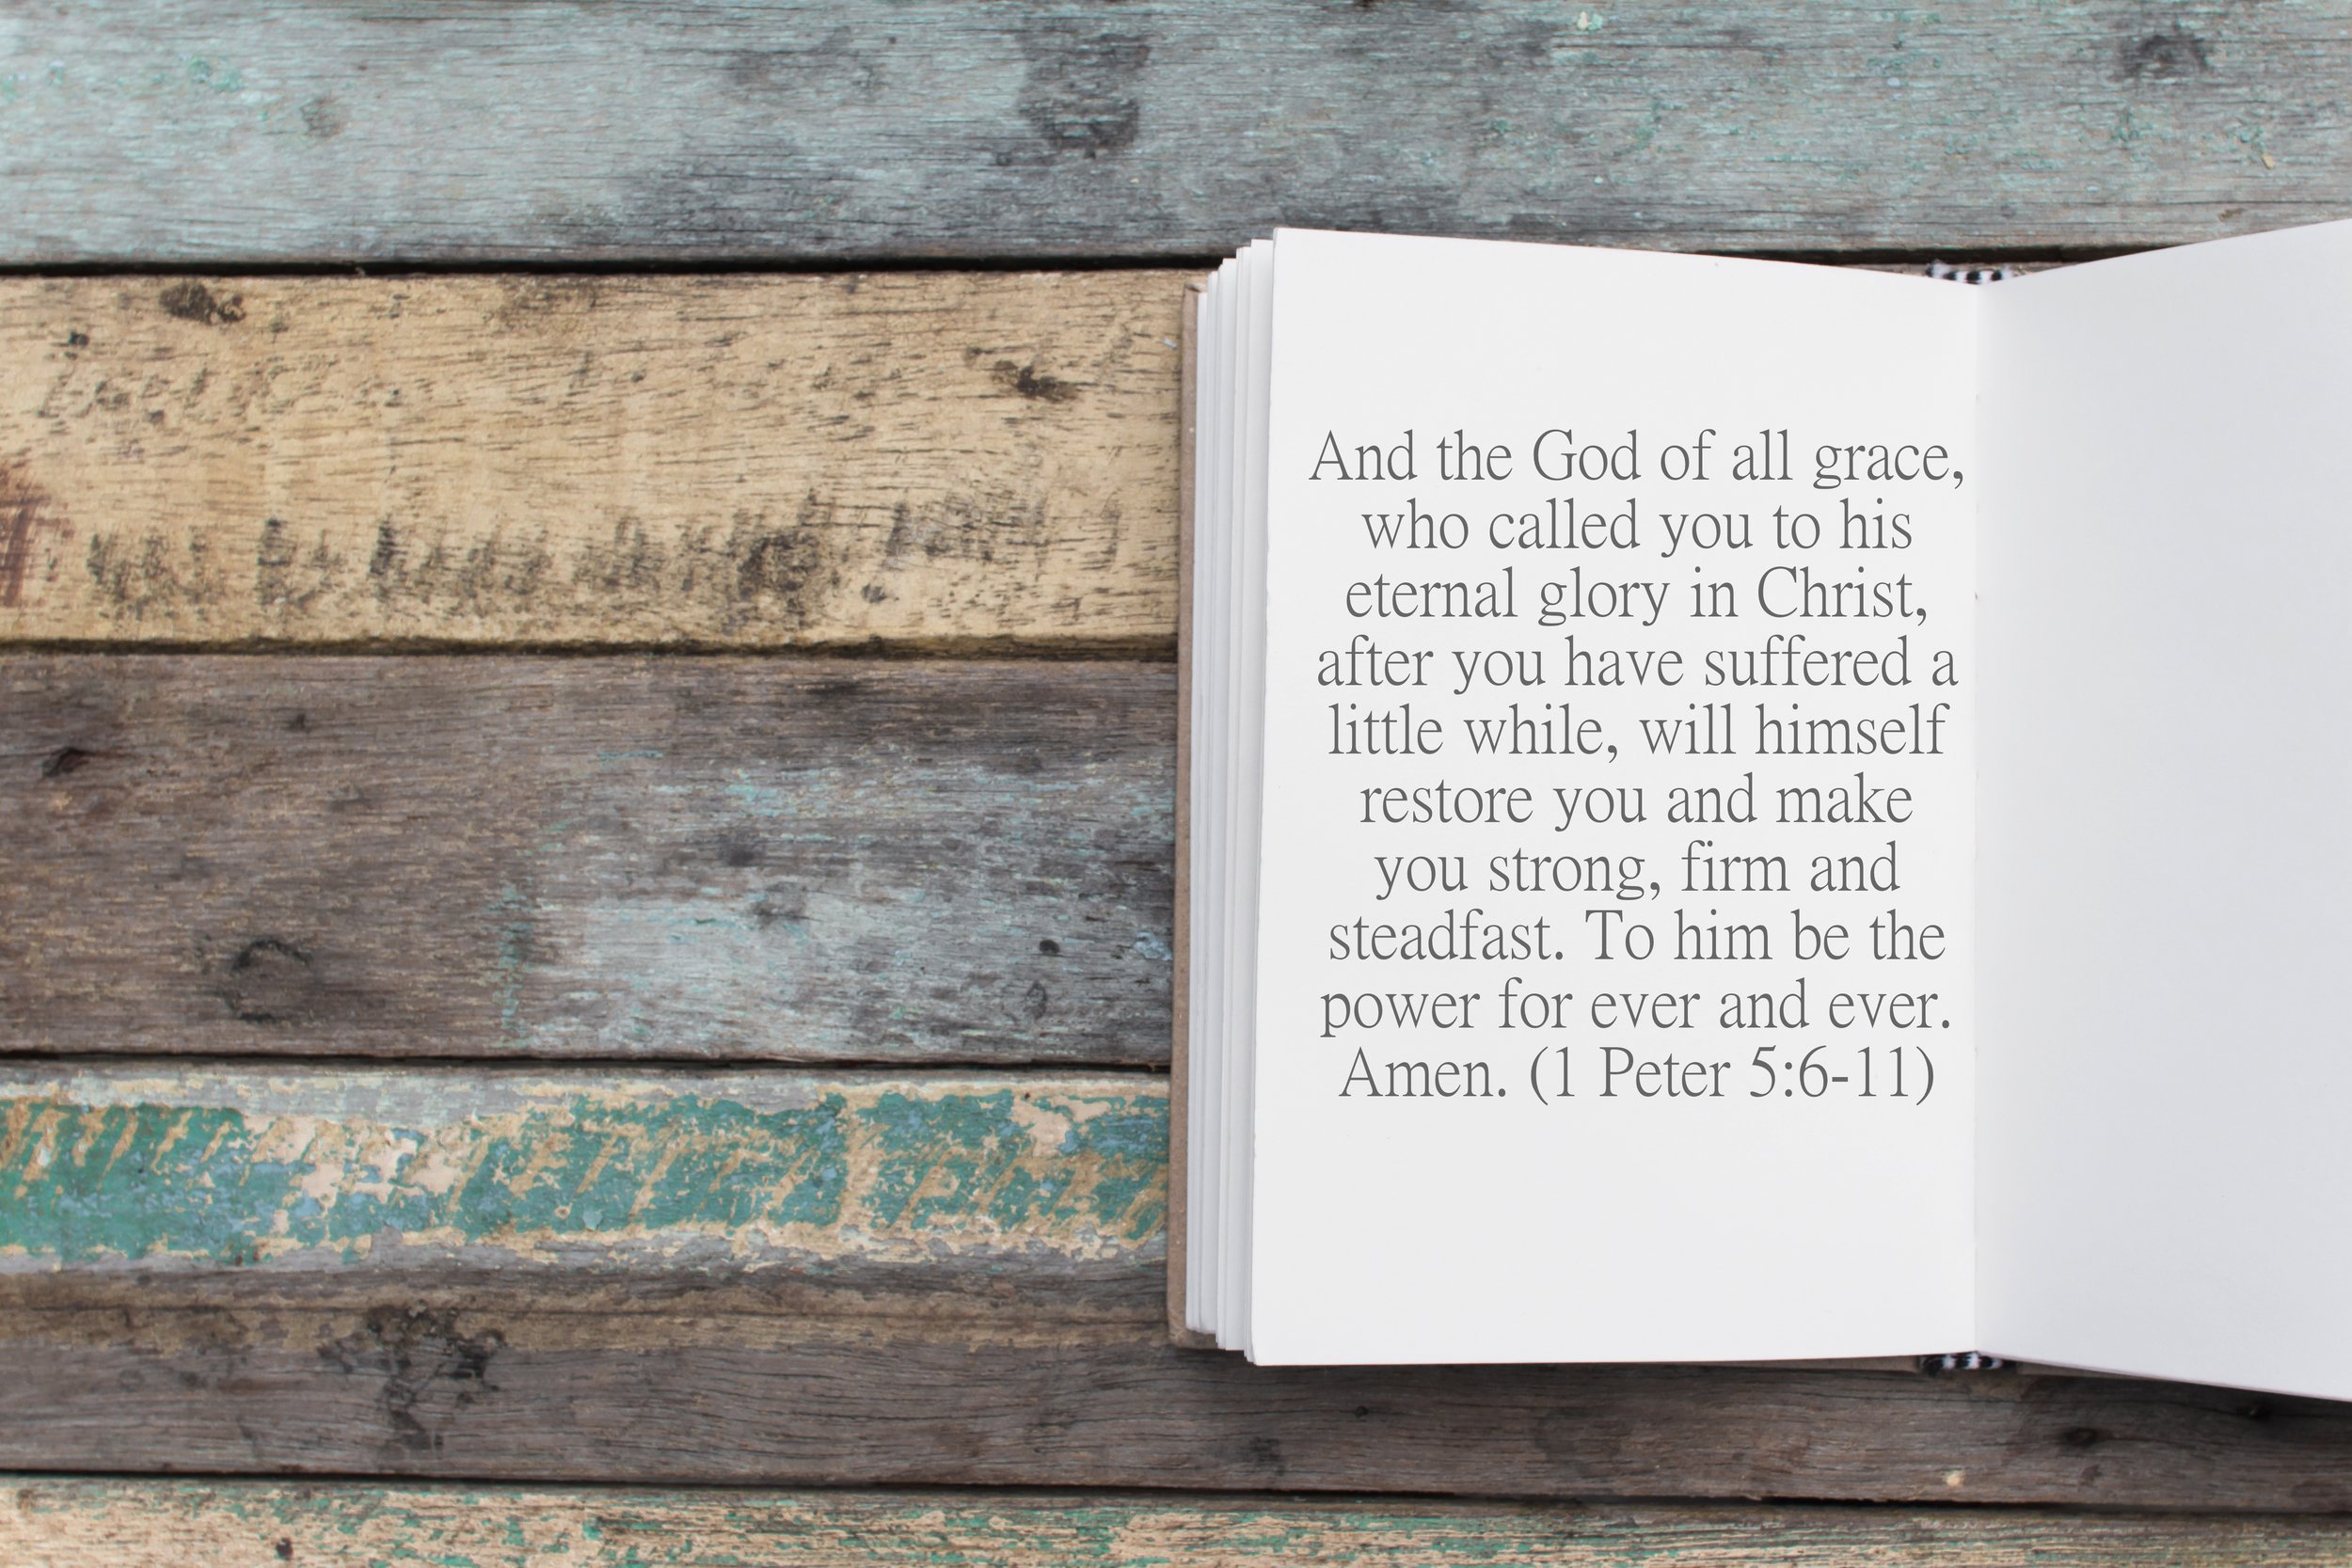 And the God of all grace,
who called you to his
eternal glory in Christ,
after you have suffered a
little while, will himself
restore you and make
you strong, firm and
steadfast. To him be the
power for ever and ever.
Amen. (1 Peter 5:6-11)